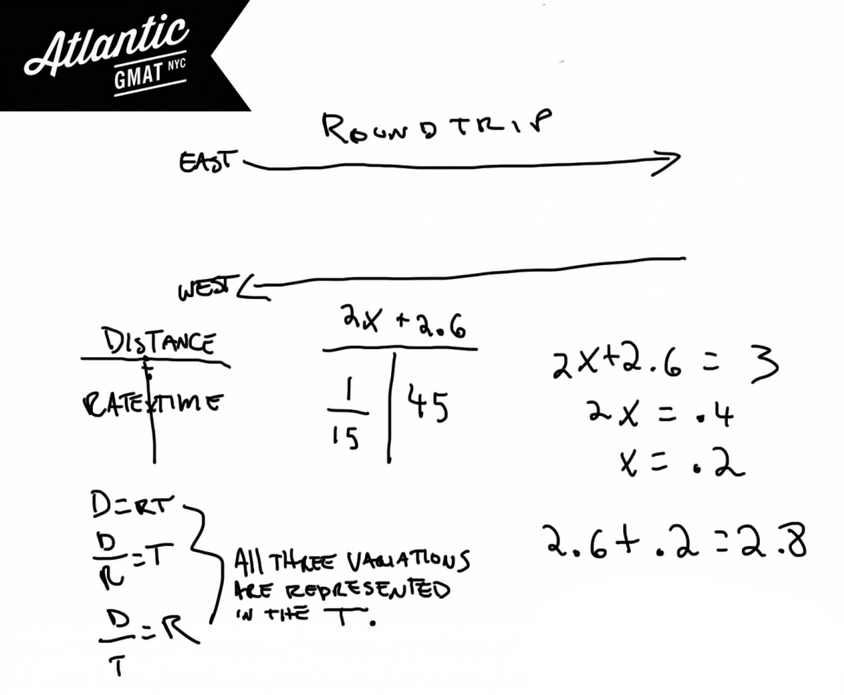 Atlantic
GMAT NYC
ROUNDTRIP
EAST
WEST
DISTANCE
RATE TIME
2x + 2.6
1
15
45
2x+2.6 = 3
2x = .4
x = .2
2.6 + .2 = 2.8
D=RT
D
R
=T
D
T
=R
All THREE VARIATIONS
ARE REPRESENTED
IN THE T.